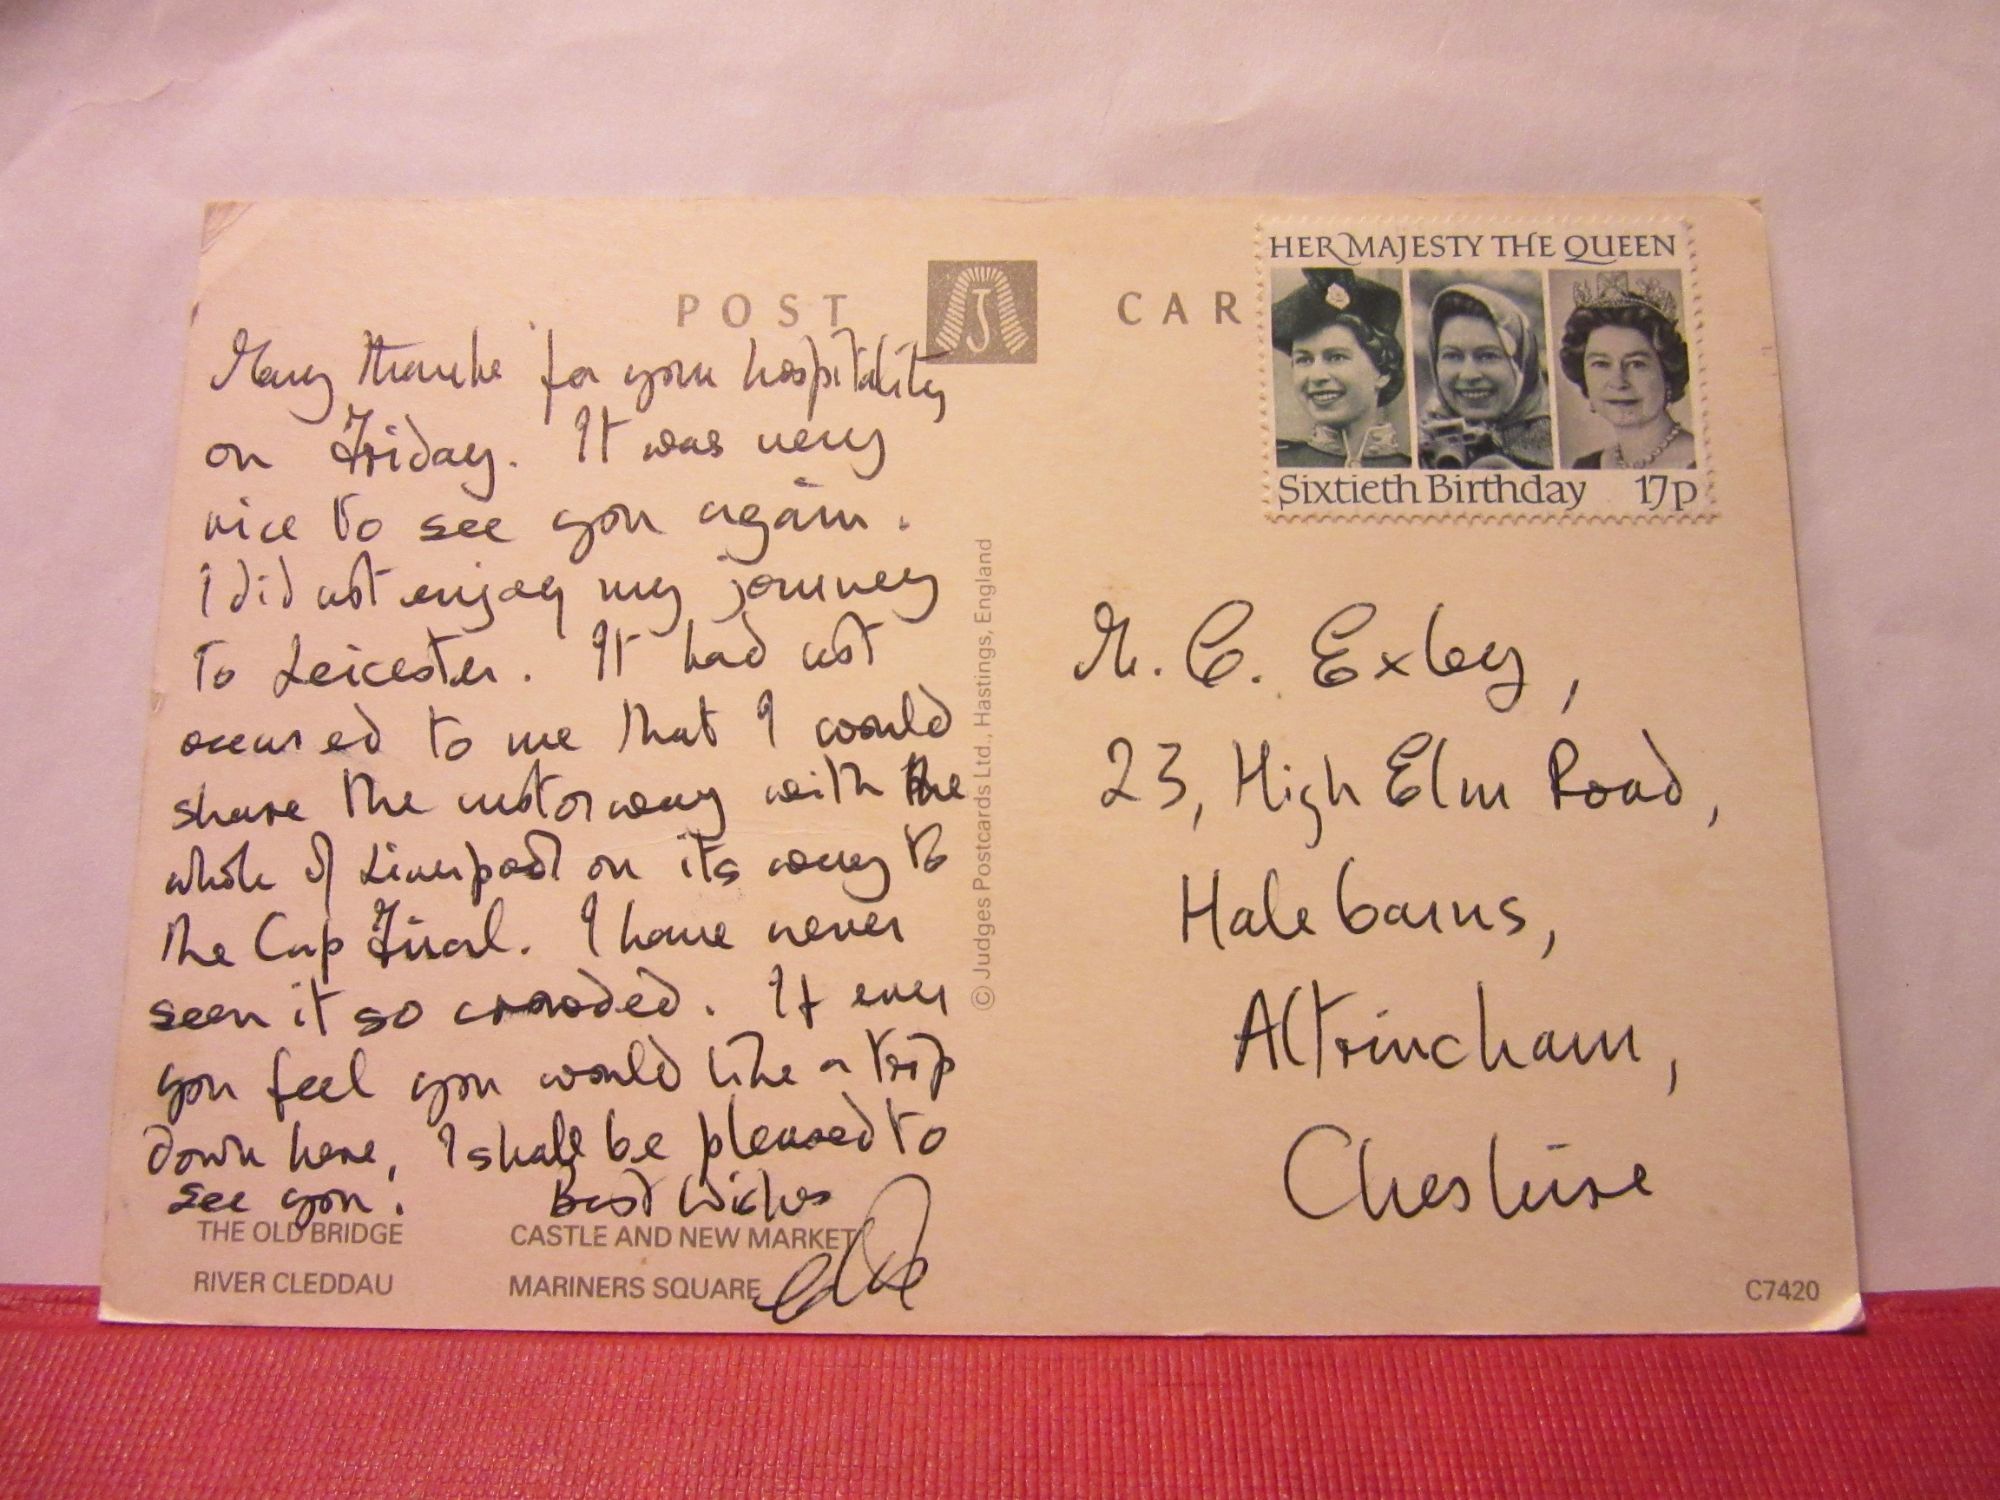 POST CAR
J
HER MAJESTY THE QUEEN
Sixtieth Birthday 17p
Many thanks for your hospitality
on Friday. It was very
nice to see you again.
I did not enjoy my journey
to Leicester. It had not
occured to me that I would
share the motorway with the
whole of Liverpool on its way to
the Cup Final. I have never
seen it so crowded. If ever
you feel you would like a trip
down here, I shall be pleased to
see you. Best Wishes
THE OLD BRIDGE CASTLE AND NEW MARKET
RIVER CLEDDAU MARINERS SQUARE
© Judges Postcards Ltd., Hastings, England
M. C. Exley,
23, High Elm Road,
Halebarns,
Altrincham,
Cheshire
C7420